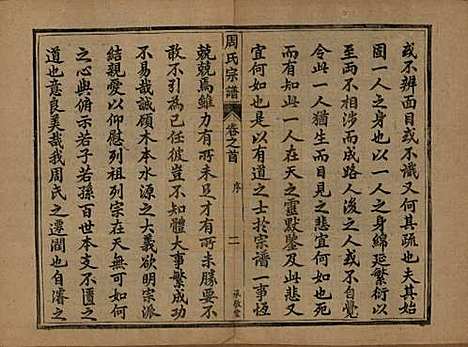 或不辨面目或不識又何其疏也夫
固一人之身以一人之身綿延繁衍以
至而不相涉而成路人後之人其不自覺
今此一人猶生而目見之悲宜何如也
又有此一人在天之靈默鑒及此其悲
宜何如也是以有道之士於宗譜一事恆
周氏宗譜
卷之首
序
二
承敬堂
兢兢焉雖力有所未足才有所未勝要不
敢不引為己任彼豈不畏大事繁成功
不易哉誠顧木本水源之大義欲明宗派
結親愛以仰慰列祖列宗在天無可如何
之心與俯示若子若孫百世本支不匱之
道也意良美哉我周氏之遷閶也自濬之